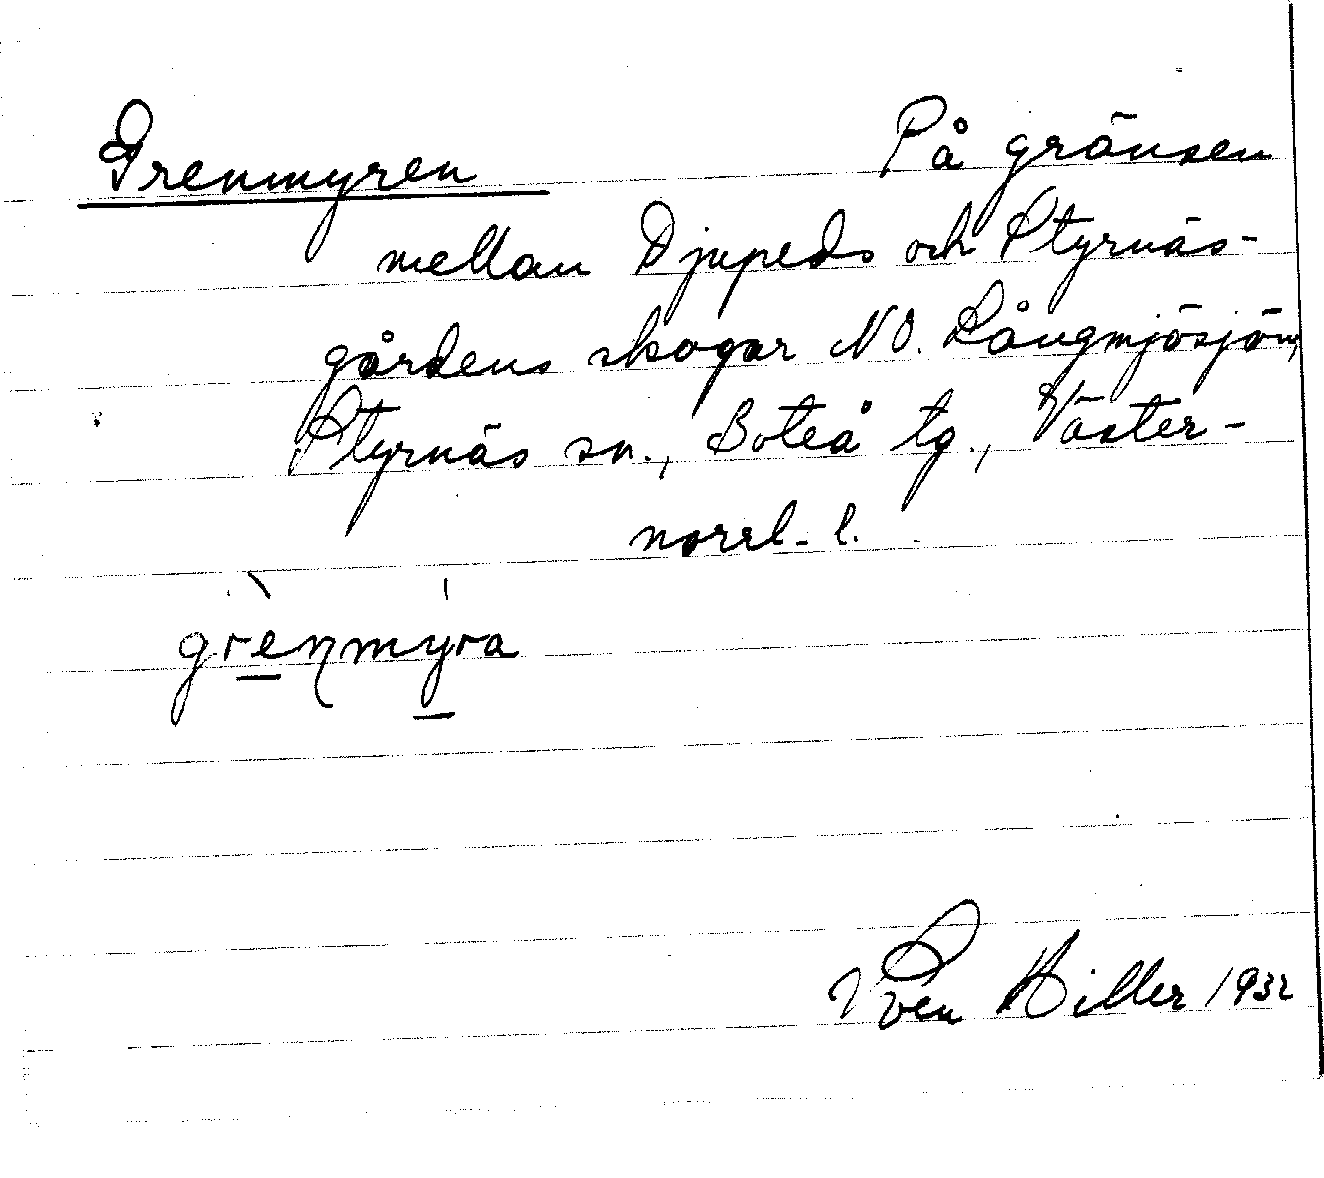 Grenmyren På gränsen
mellan Djupeds och Styrnäs-
gårdens skogar NO. Långmjösjön,
Styrnäs sn., Boteå tg., Väster-
norrl. l.
grènmýra
Sven Hiller 1932